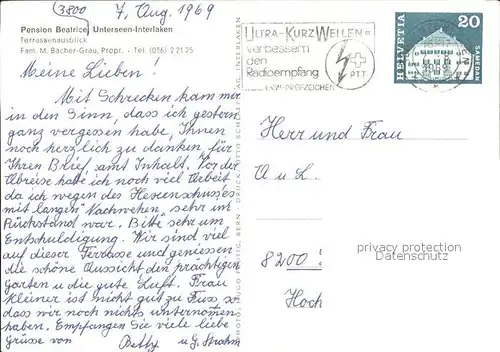 (3800
7, Aug. 1969
Pension Beatrice, Unterseen-Interlaken
Terrassenausblick
Fam. M. Bächer-Grau, Propr. - Tel. (036) 2 21 25
Meine Lieben!
Mit Schrecken kam mir
in den Sinn, dass ich gestern
ganz vergessen habe, Ihnen
noch herzlich zu danken, für
Ihren Brief samt Inhalt. Vor der
Abreise hatte ich noch viel Arbeit
da ich wegen des Hexenschusses
mit langen "Nachwehen", sehr im
Rückstand war. Bitte sehr um
Entschuldigung. Wir sind viel
auf dieser Terrasse und geniessen
die schöne Aussicht den prächtigen
Garten u. die gute Luft. Frau
Kleiner ist nicht gut zu Fuss, so
dass wir noch nichts unternommen
haben. Empfangen Sie viele liebe
Grüsse von Betty u. G. Strahm
ULTRA-KURZWELLEN=
verbessern
den
Radioempfang
PTT
HELVETIA
20
SAMEDAN
Herrn und Frau
A u L.
8200
Hoch
privacy protection
Datenschutz